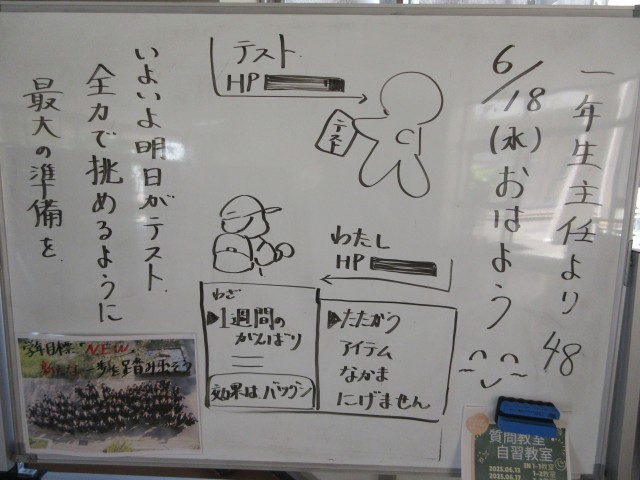 一年生主任より 48
6/18(水)おはよう
テスト
HP
テスト
わたし
HP
たたかう
アイテム
なかま
にげません
わざ
1週間の
がんばり
効果は、バツグン
いよいよ明日がテスト
全力で挑めるように
最大の準備を
"NEW"
質問教室
自習教室